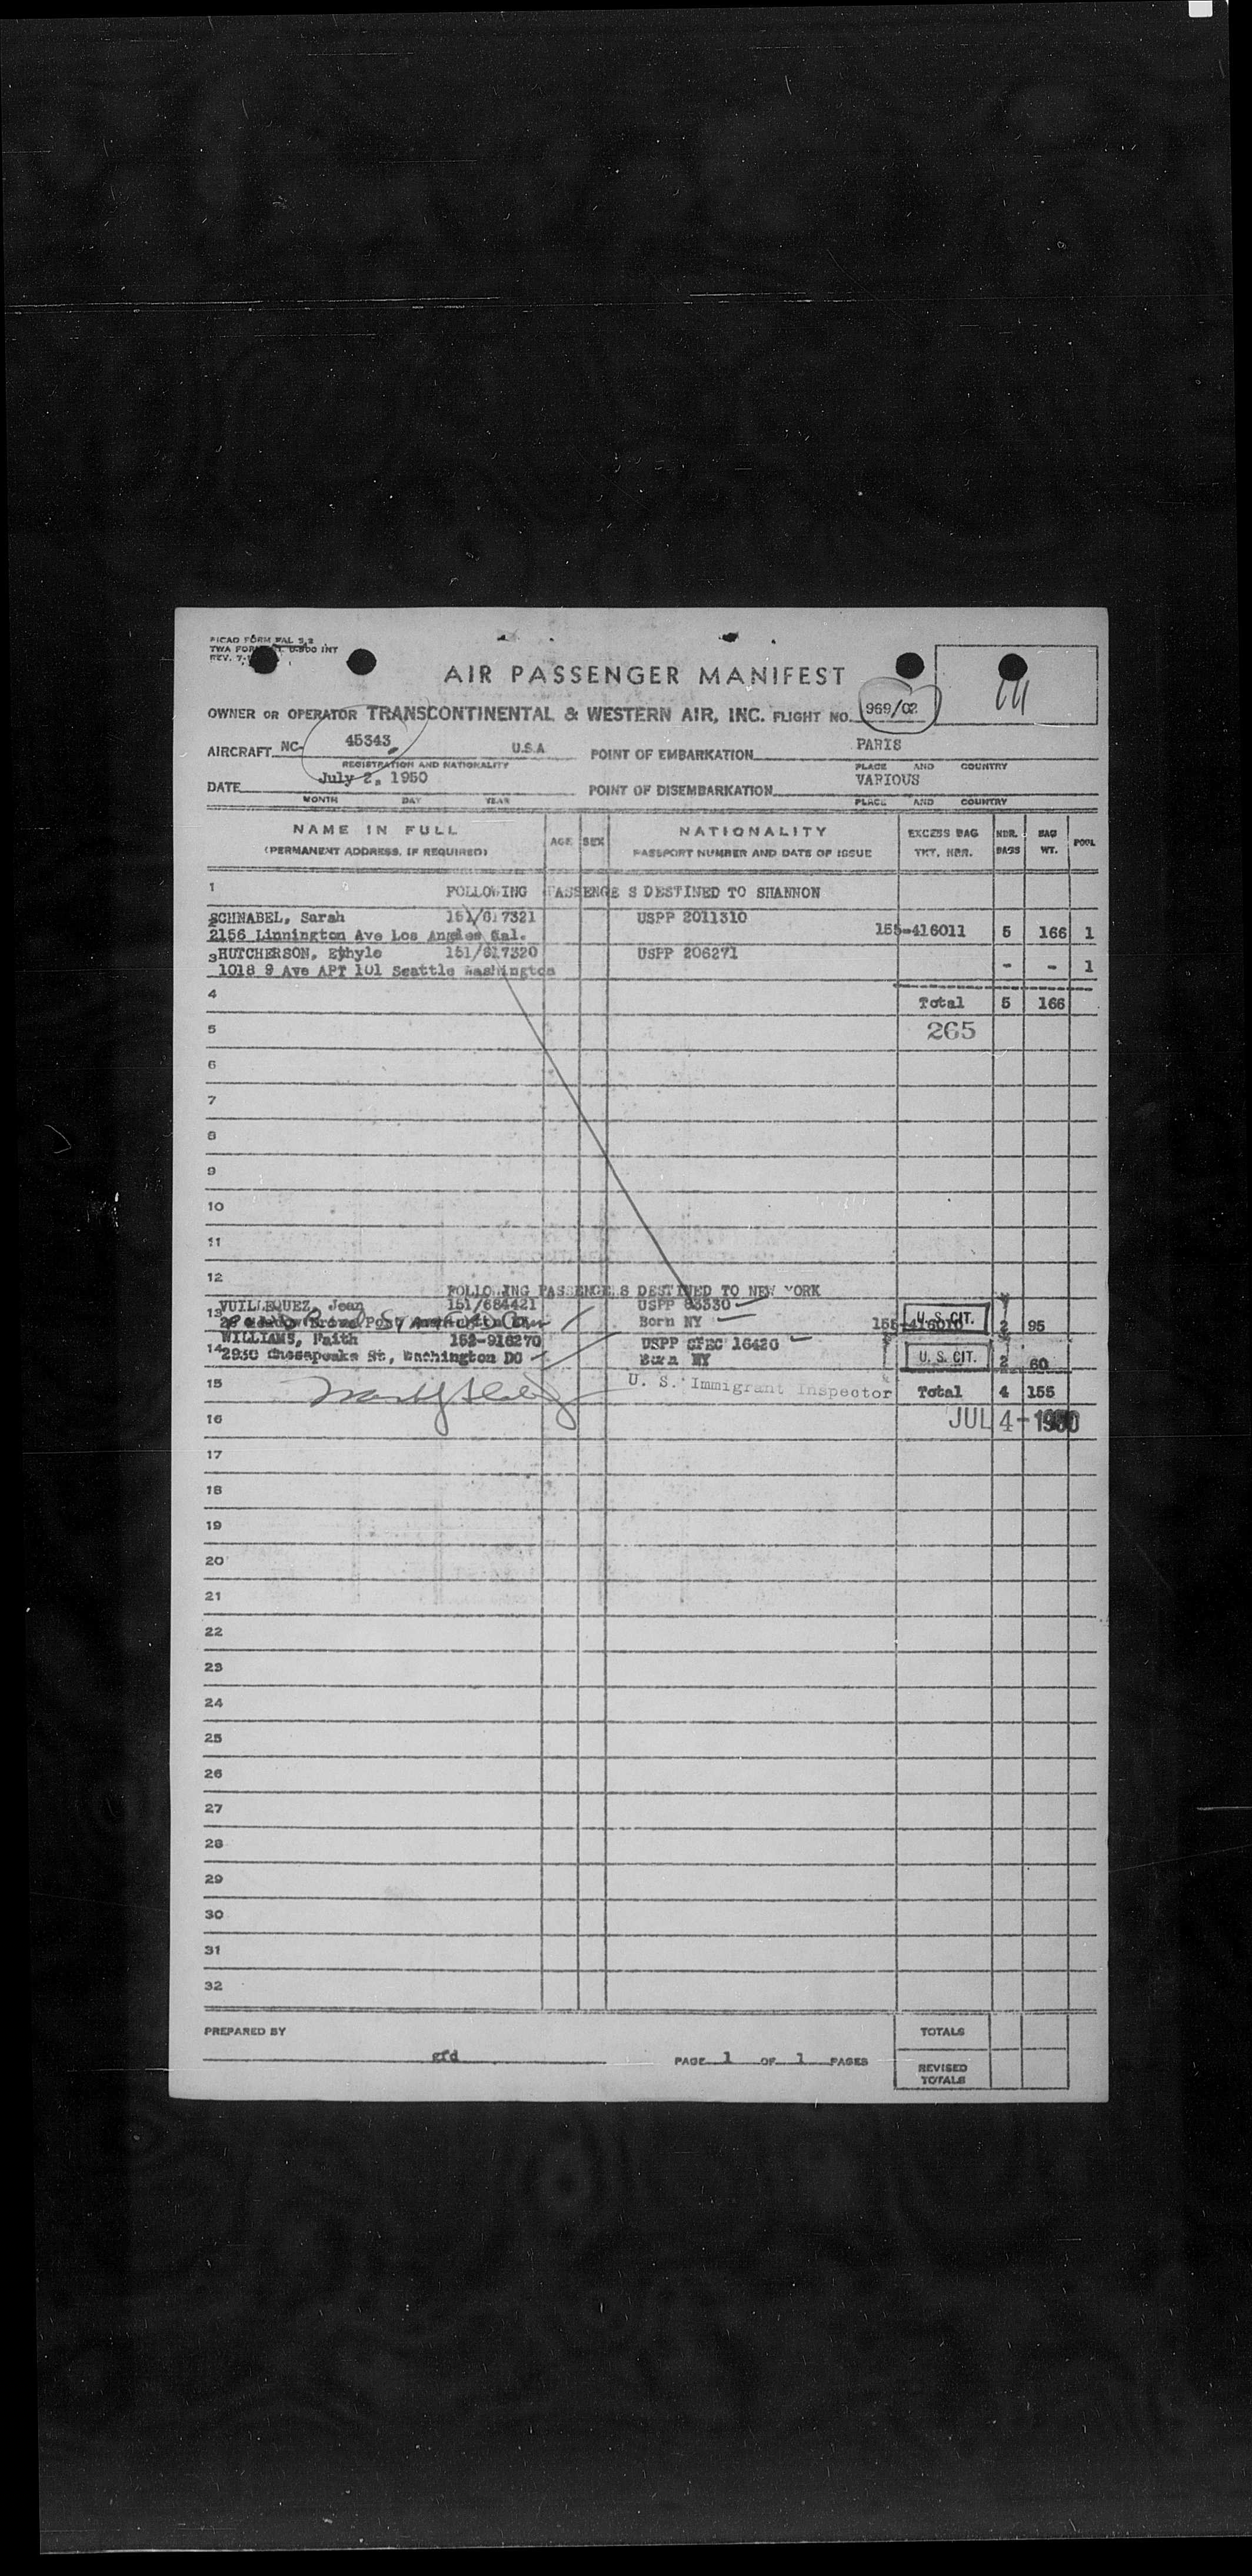 PICAO FORM FAL 3,2
TWA FORM INT
REV. 7-
AIR PASSENGER MANIFEST
OWNER OR OPERATOR TRANSCONTINENTAL & WESTERN AIR, INC. FLIGHT NO. 969/02
AIRCRAFT NC- 45343 U.S.A POINT OF EMBARKATION PARIS
REGISTRATION AND NATIONALITY PLACE AND COUNTRY
DATE July 2, 1950 POINT OF DISEMBARKATION VARIOUS
MONTH DAY YEAR PLACE AND COUNTRY
NAME IN FULL AGE SEX NATIONALITY EXCESS BAG NBR. BAG POOL
(PERMANENT ADDRESS, IF REQUIRED) PASSPORT NUMBER AND DATE OF ISSUE TKT. NBR. BAGS WT.
1 FOLLOWING PASSENGE S DESTINED TO SHANNON
2 SCHNABEL, Sarah 151/617321 USPP 2011310
2156 Linnington Ave Los Angles Cal. 155-416011 5 166 1
3 HUTCHERSON, Ethyle 151/617320 USPP 206271
1018 9 Ave APT 101 Seattle Washington - - 1
4 Total 5 166
5 265
6
7
8
9
10
11
12
FOLLOWING PASSENGE S DESTINED TO NEW YORK
VUILLEQUEZ, Jean 151/684421 USPP 83330
13 Born NY 155-416010 U. S. CIT. 2 95
WILLIAMS, Faith 152-916270 USPP SPEC 16420
14 2930 Chesapeake St, Washington DC Born NY U. S. CIT. 2 60
15 U. S. Immigrant Inspector Total 4 155
16 JUL 4- 1950
17
18
19
20
21
22
23
24
25
26
27
28
29
30
31
32
PREPARED BY TOTALS
grd PAGE 1 OF 1 PAGES
REVISED
TOTALS